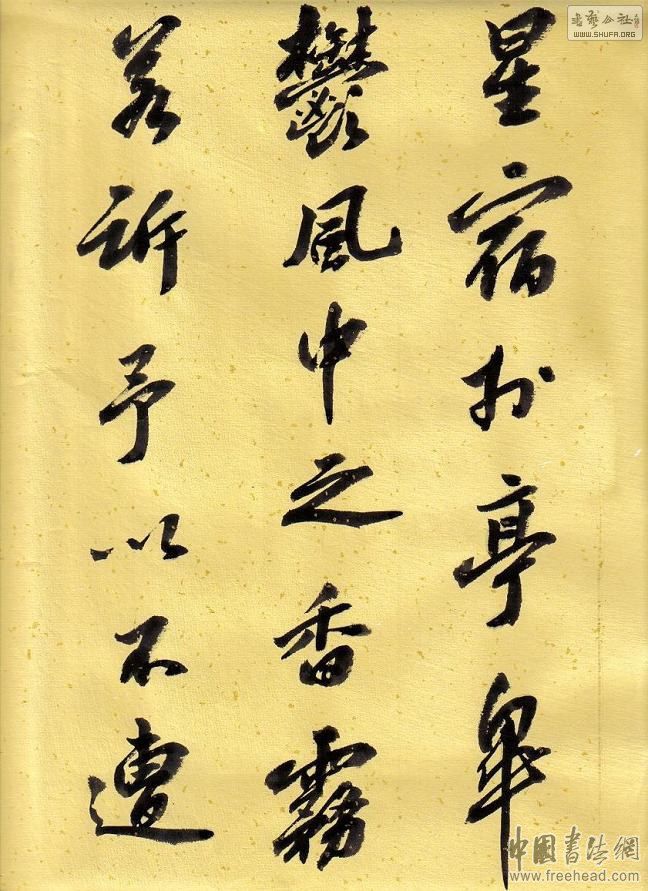 星宿於亭皋
鬱風中之香霧
若訴予以不遭
書藝公社
WWW.SHUFA.ORG
中国書法網
www.freehead.com